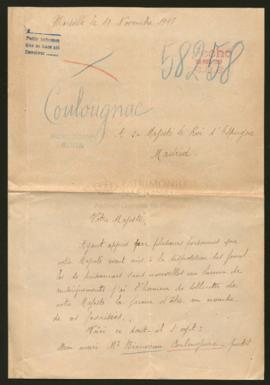 Marseille le 11 Novembre 1915
58258
Coulougnac
A sa Majesté le Roi d'Espagne
Madrid
Votre Majesté,
Ayant appris par plusieurs personnes que
votre Majesté avait mis à la disposition des familles
de prisonniers sans nouvelles un bureau de
renseignements j'ai l'honneur de solliciter de
votre Majesté la faveur d'être au nombre
de ces
Voici ce dont il s'agit:
Mon mari Mr Coulougnac